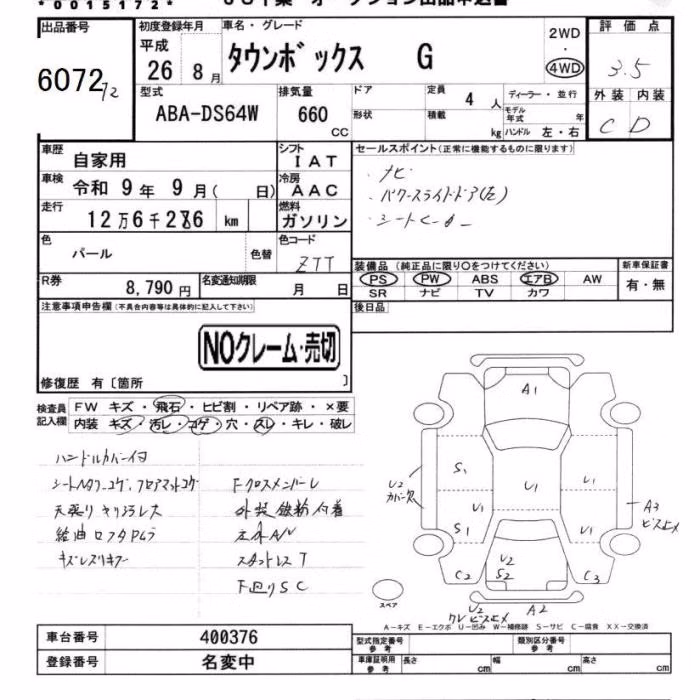 *0015172*
出品番号
6072
72
初度登録年月
平成
26 8月
車名・グレード
タウンボックス G
2WD
・
4WD
評価点
3.5
型式
ABA-DS64W
排気量
660
CC
ドア
形状
定員
4 人
積載
kg
ディーラー・並行
モデル年式
年
ハンドル 左・右
外装 内装
C D
車歴
自家用
シフト
IAT
車検
令和 9年 9月( 日)
冷房
AAC
走行
12万6千286 km
燃料
ガソリン
色
パール
色替
色コード
Z7T
セールスポイント(正常に機能するものに限ります)
・ナビ
・パワースライドドア(左)
・シートヒーター
R券
8,790円
名変通知期限
月 日
装備品 (純正品に限り〇をつけてください)
PS PW ABS エアB AW
SR ナビ TV カワ
新車保証書
有・無
注意事項申告欄(不具合内容等は具体的に記入して下さい)
後日品
NOクレーム・売切
修復歴 有〔箇所 〕
検査員記入欄
FW キズ・飛石・ヒビ割・リペア跡・×要
内装 キズ・汚レ・コゲ・穴・スレ・キレ・破レ
ハンドルカバー付
天張り
外装鉄粉付着
スタットレスT
下廻りSC
A1
S1
U1
U1
U1
S1
U1
U2
カバー欠
A3
ビス止メ
C2
U2
S2
C3
U2
A2
ワレ ビス止メ
スペア
A-キズ E-エクボ U-凹み W-補修跡 S-サビ C-腐食 XX-交換済
車台番号
400376
登録番号
名変中
型式指定番号
参考
類別区分番号
参考
車庫証明用
参考
長さ
cm
幅
cm
高さ
cm